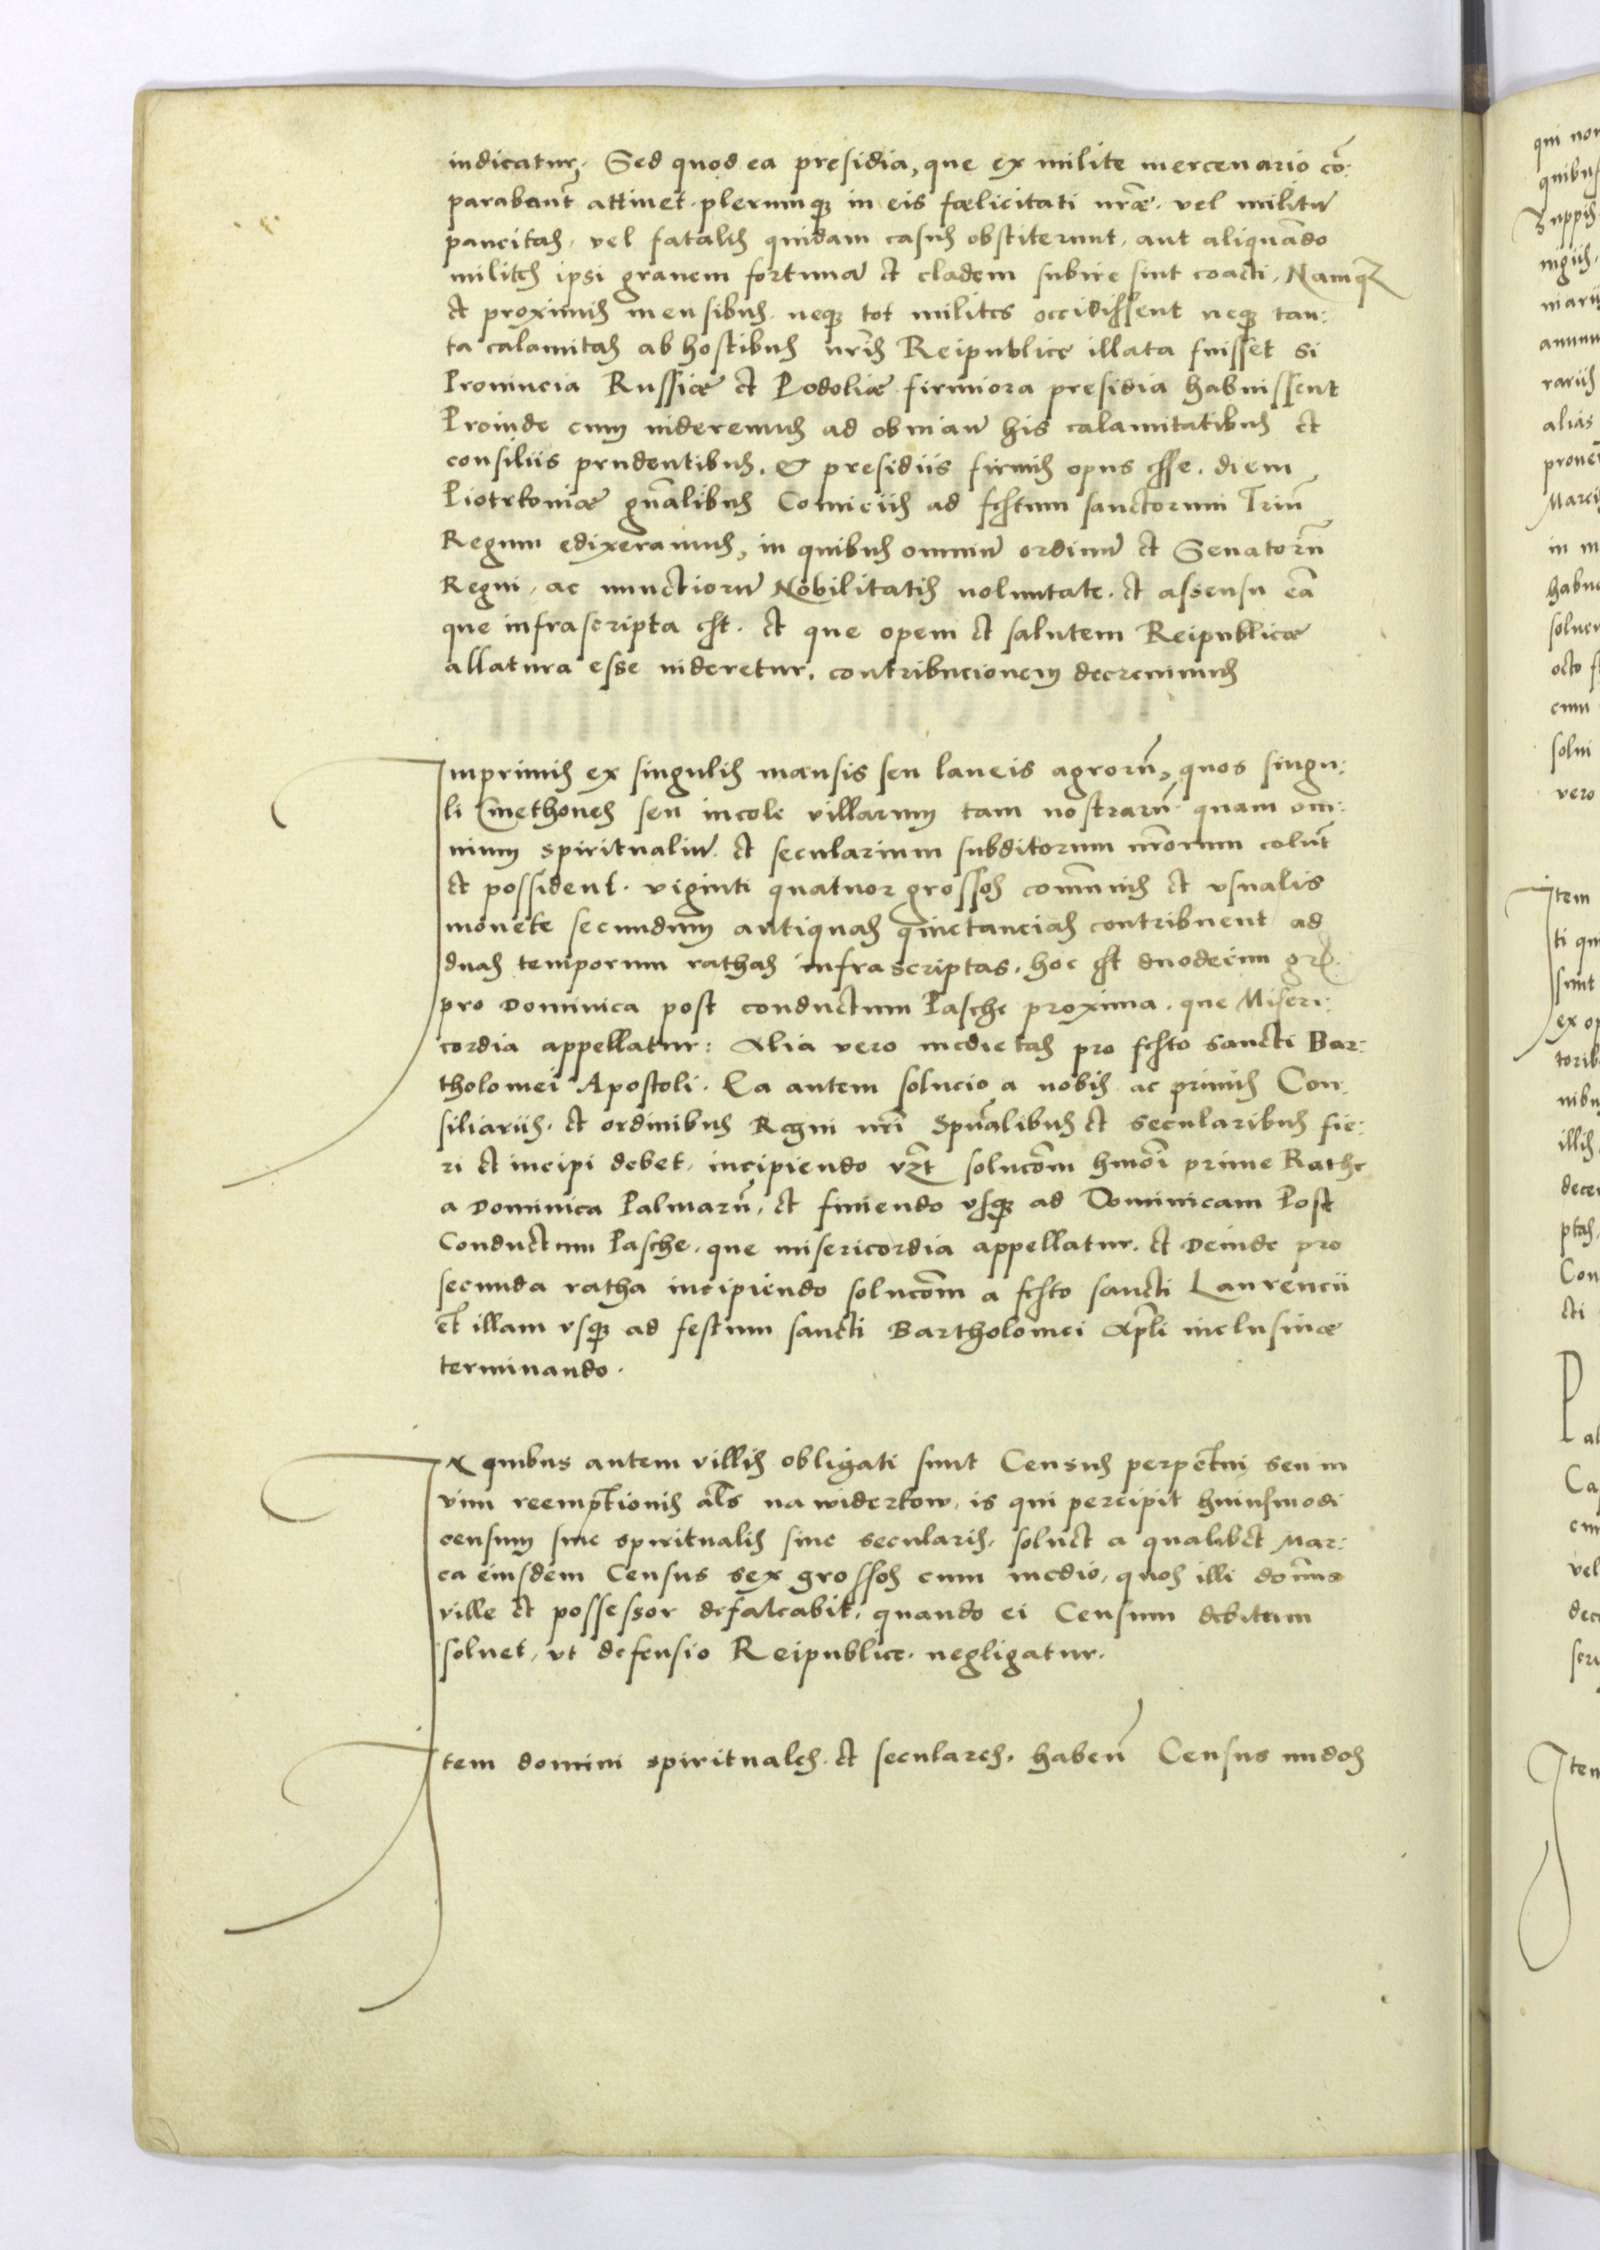 indicatur. Sed quod ea presidia, que ex milite mercenario cō:
parabant̄ attinet. plerumq; in eis fœlicitati nr̄æ. vel militū
paucitas, vel fatales quidam casus obstiterunt, aut aliquādo
milites ipsi grauem fortunā et cladem subire sint coacti. Namq;
et proximis mensibus. neq; tot milites occidissent neq; tan:
ta calamitas ab hostibus nr̄is Reipublice illata fuisset si
Prouincia Russiæ et Podoliæ firmiora presidia habuissent
Proinde cum uideremus ad obuiam̄ his calamitatibus et
consiliis prudentibus, & presidiis firmis opus esse. diem
Piotrkouiæ gn̄alibus Comiciis ad festum sanctorum Triū
Regum edixeramus, in quibus omniū ordinū et Senatorū
Regni, ac nunctiorū Nobilitatis uoluntate. et assensu eā
que infrascripta est. et que opem et salutem Reipublicæ
allatura esse uideretur, contribucionem decreuimus
Imprimis ex singulis mansis seu laneis agrorū, quos singu:
li Cmethones seu incole villarum tam nostrarū quam om:
nium spiritualiū et secularium subditorum nr̄orum colūt
et possident. viginti quatuor grossos com̄unis et vsualis
monete secundum antiquas quietancias contribuent ad
duas temporum rathas infrascriptas, hoc est duodecim gr.
pro Dominica post conductum Pasche proxima. que Miseri:
cordia appellatur: Alia vero medietas pro festo sancti Bar:
tholomei Apostoli. Ea autem solucio a nobis ac primis Con:
siliariis, et ordinibus Regni nr̄i Spūalibus et secularibus fie:
ri et incipi debet, incipiendo vzt solucōm hmōi prime Rathe
a Dominica Palmarū, et finiendo vsq; ad Dominicam Post
Conductum Pasche, que misericordia appellatur. et Deinde pro
secunda ratha incipiendo solucōm a festo sancti Laurencii
et illam vsq; ad festum sancti Bartholomei Apli inclusiuæ
terminando.
Ex quibus autem villis obligati sunt Census perpetui seu in
vim reemptionis als na widerkow, is qui percipit huiusmodi
censum siue spiritualis siue secularis, soluet a qualibet Mar:
ca eiusdem Census sex grossos cum medio, quos illi domīus
ville et possessor defalcabit, quando ei Censum debitum
soluet, vt defensio Reipublice. negligatur.
Item domini spirituales. et seculares, haben̄ Census nudos